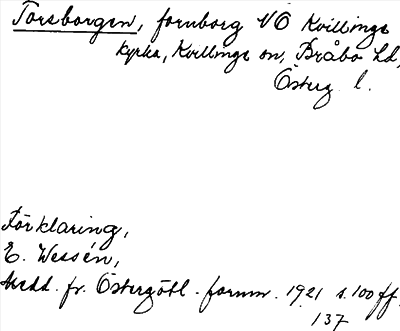 Torsborgen, fornborg NO Kvillinge
kyrka, Kvillinge sn, Bråbo hd,
Österg. l.
Förklaring,
E. Wessén,
Medd. fr. Östergötl. fornm. 1921 s. 100 ff.
137